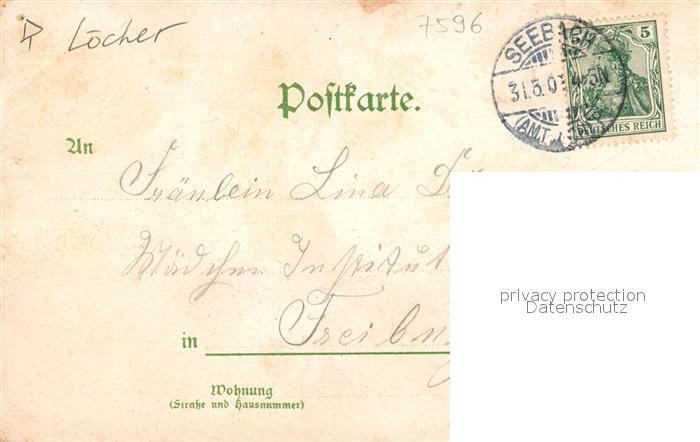 Löcher
7596
SEEBACH
31.5.0
(AMT
5
DEUTSCHES REICH
Postkarte.
An
Fräulein Lina
Mädchen Institut
privacy protection
Datenschutz
in Freibu
Wohnung
(Straße und Hausnummer)